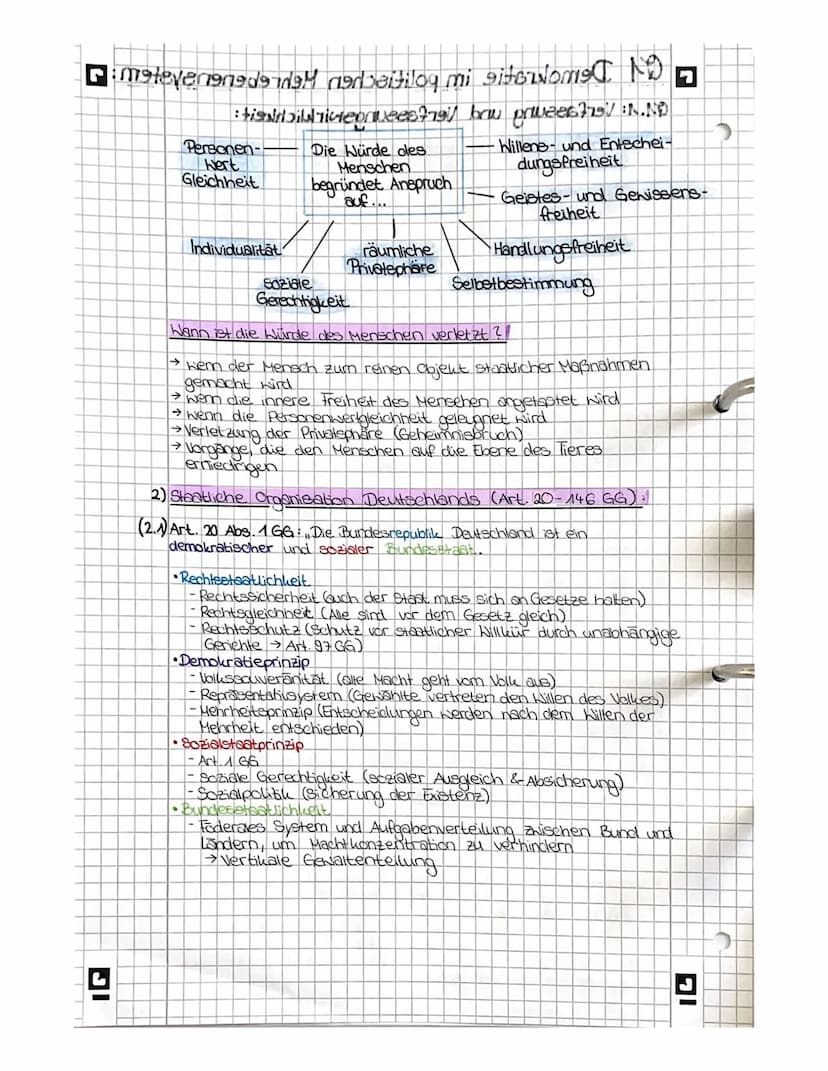 Q1 Demokratie im politischen Mehrebenensystem:
Q1.1: Verfassung und Verfassungswirklichkeit:
Personen-
wert
Gleichheit
Die Würde des
Menschen
begründet Anspruch
auf...
Willens- und Entschei-
dungsfreiheit
Geistes- und Gewissens-
freiheit
Individualität
räumliche
Privatsphäre
Handlungsfreiheit
soziale
Gerechtigkeit
Selbstbestimmung
Wann ist die Würde des Menschen verletzt?
→ wenn der Mensch zum reinen Objekt staatlicher Maßnahmen
gemacht wird
→ wenn die innere Freiheit des Menschen angetastet wird
→ wenn die Personenwertgleichheit geleugnet wird
→ Verletzung der Privatsphäre (Geheimnisbruch)
→ Vorgänge, die den Menschen auf die Ebene des Tieres
erniedrigen
2) Staatliche Organisation Deutschlands (Art. 20-146 GG):
(2.1) Art. 20 Abs. 1 GG: „Die Bundesrepublik Deutschland ist ein
demokratischer und sozialer Bundesstaat.
• Rechtsstaatlichkeit
- Rechtssicherheit (auch der Staat muss sich an Gesetze halten)
- Rechtsgleichheit (Alle sind vor dem Gesetz gleich)
- Rechtsschutz (Schutz vor staatlicher Willkür durch unabhängige
Gerichte → Art. 97 GG)
• Demokratieprinzip
- Volkssouveränität (alle Macht geht vom Volk aus)
- Repräsentativsystem (Gewählte vertreten den Willen des Volkes)
- Mehrheitsprinzip (Entscheidungen werden nach dem Willen der
Mehrheit entschieden)
• Sozialstaatprinzip
- Art. 1 GG
- Soziale Gerechtigkeit (sozialer Ausgleich & Absicherung)
- Sozialpolitik (Sicherung der Existenz)
• Bundesstaatlichkeit
- Föderales System und Aufgabenverteilung zwischen Bund und
Ländern, um Machtkonzentration zu verhindern
→ Vertikale Gewaltenteilung